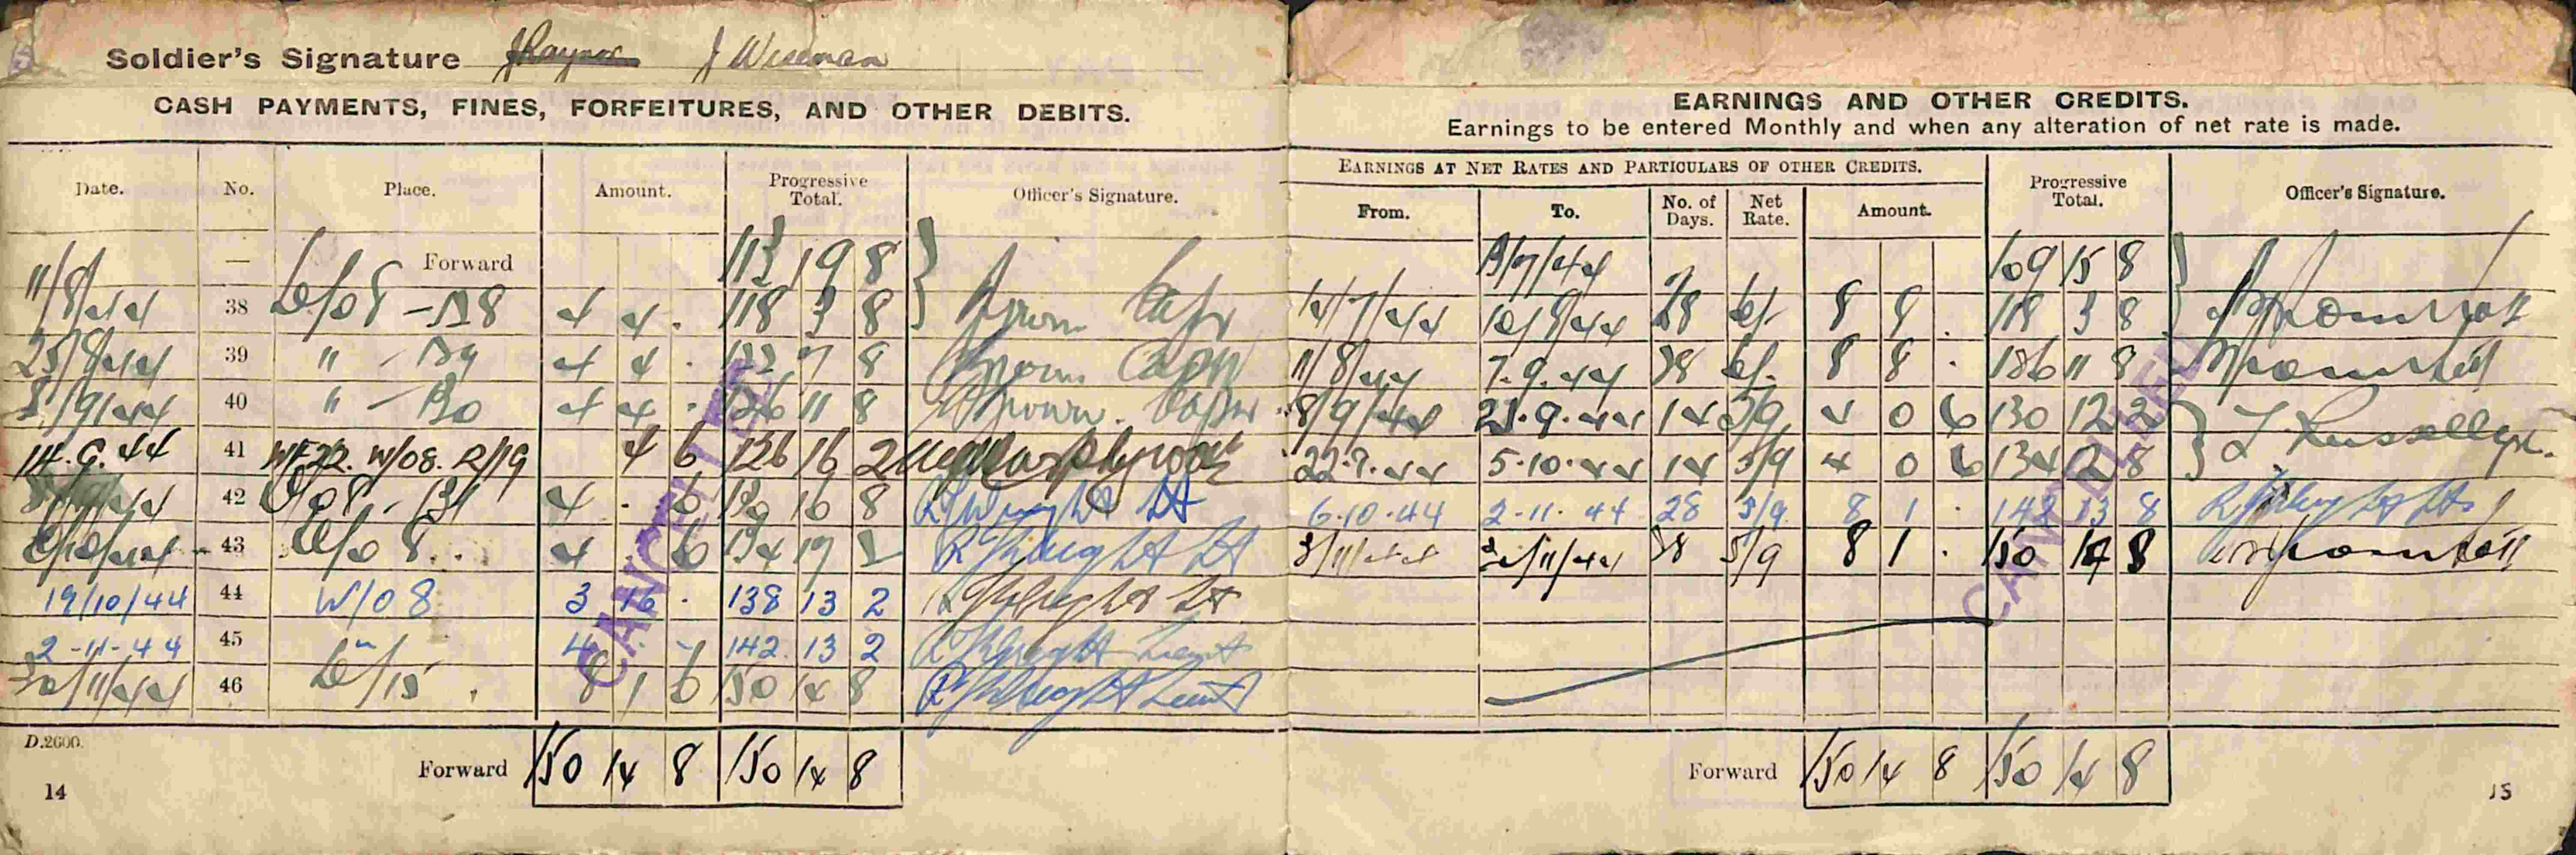 Soldier's Signature J Raynor J Wiseman
CASH PAYMENTS, FINES, FORFEITURES, AND OTHER DEBITS.
Date. No. Place. Amount. Progressive Total. Officer's Signature.
— Forward 113 19 8
11/8/44 38 W/08 - 4 4 . 118 3 8 Brown Capt
25/8/44 39 " 4 4 . 122 7 8 Brown Capt
40 " 4 4 . 126 11 8 Brown. Capt
14.9.44 41 W/08. R/19 4 6 126 16 2
42 4 . 6 130 16 8 R Wright Lt
43 W/08 4 . 6 134 17 2 R Wright Lt
19/10/44 44 W/08 3 16 . 138 13 2 R Wright Lt
2-11-44 45 4 . - 142 13 2 R Wright Lieut
30/11/44 46 8 1 6 150 14 8 R Wright Lieut
D.2600.
Forward 150 14 8 150 14 8
14
CANCELLED
EARNINGS AND OTHER CREDITS.
Earnings to be entered Monthly and when any alteration of net rate is made.
EARNINGS AT NET RATES AND PARTICULARS OF OTHER CREDITS. Progressive Total. Officer's Signature.
From. To. No. of Days. Net Rate. Amount.
13/7/44 109 15 8
14/7/44 10/8/44 28 6/- 8 8 . 118 3 8
11/8/44 7.9.44 28 6/- 8 8 . 126 11 8
8/9/44 21.9.44 14 5/9 4 0 6 130 12 2
22.9.44 5.10.44 14 5/9 4 0 6 134 12 8 Russell
6.10.44 2-11-44 28 5/9 8 1 . 142 13 8 R Wright Lt
3/11/44 30/11/44 28 5/9 8 1 . 150 14 8
CANCELLED
Forward 150 14 8 150 14 8
15